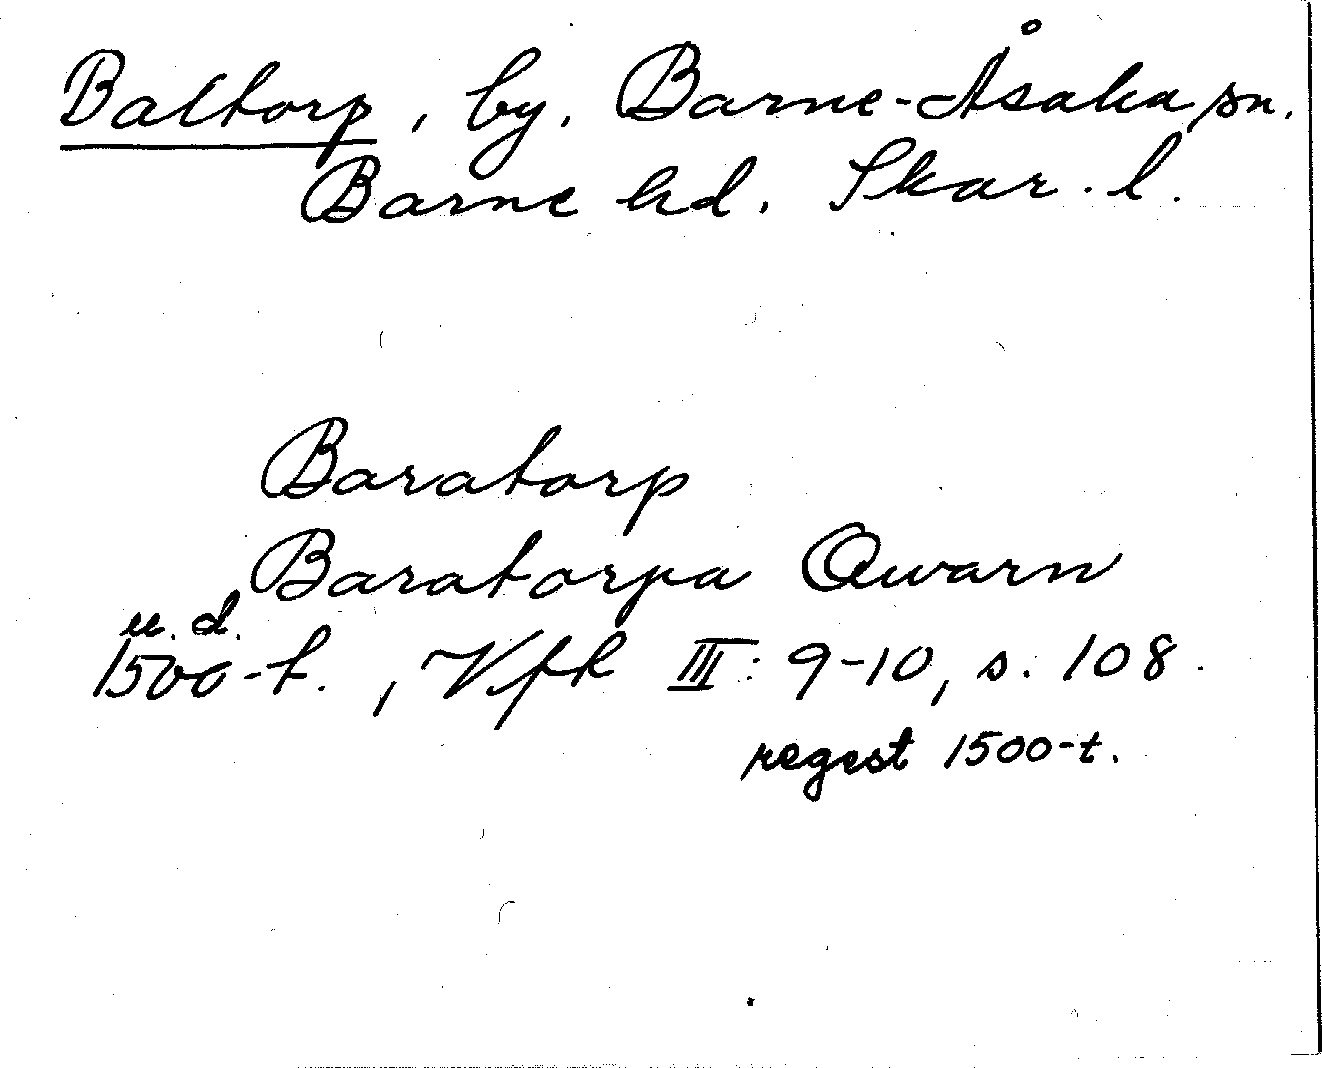 Baltorp, by. Barne-Åsaka sn.
Barne hd. Skar. l.
Baratorp
Baratorpa Qwarn
u. d.
1500-t., Vfk III: 9-10, s. 108.
regest 1500-t.